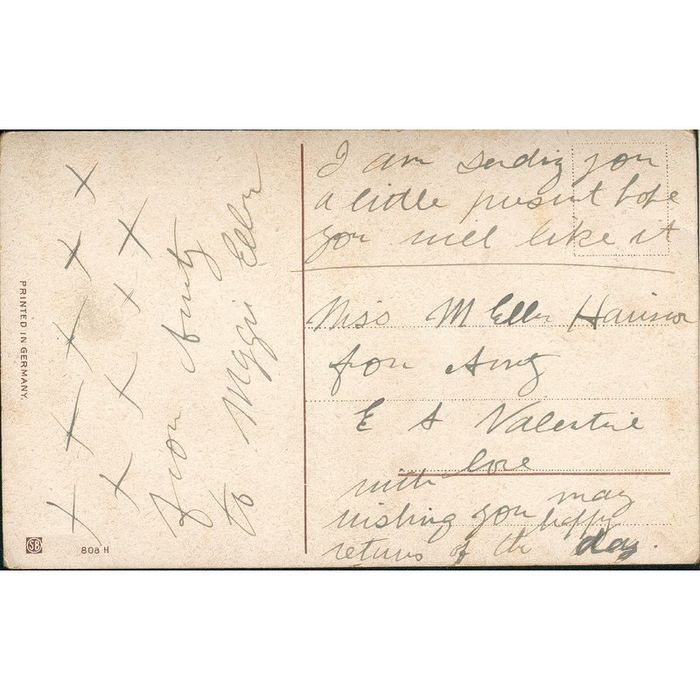 I am sending you
a little present hope
you will like it
Miss M Ellen Harrison
from Aunty
E A Valentine
with love
wishing you many
happy
returns of the day.
From Aunty
to Maggie Ellen
X X X X X
X X X X
PRINTED IN GERMANY.
SB
808 H